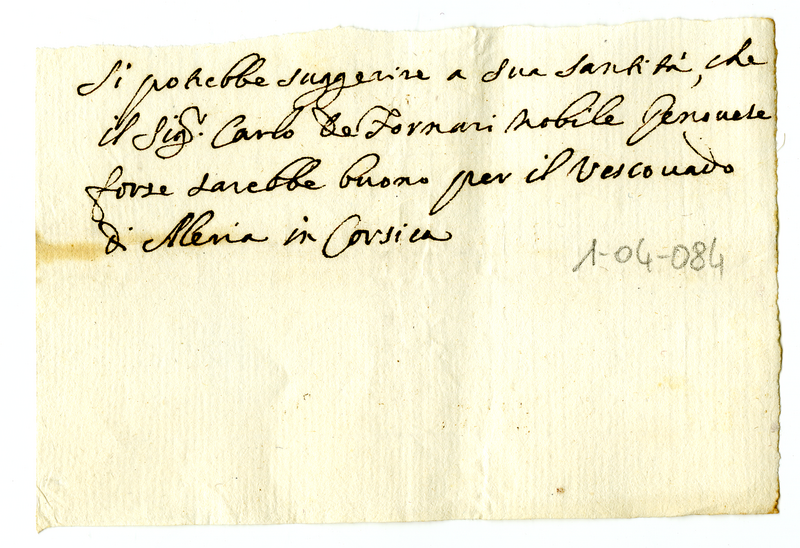 Si potrebbe suggerire a sua santità, che
il Sig.r Carlo de Fornari Nobile Genovese
forse sarebbe buono per il Vescovado
di Aleria in Corsica
1-04-084